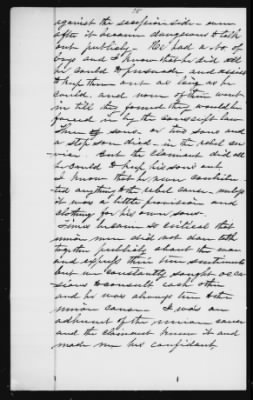 against the secession side - even
after it became dangerous to talk
out publicly - He had a no. of
boys and I know that he did all
he could to persuade and assist
to keep them out as long as he
could, and none of them went
in till they found they would be
forced in by the conscript law
Three sons or two sons and
a step son died in the rebel ser-
vice. But the claimant did all
he could to keep his sons out.
I know that he never contribu-
ted anything to the rebel cause, unless
it was a little provision and
clothing for his own sons.
Times became so critical that
union men did not dare talk
together publicly about the war
and express their true sentiments
but we constantly sought occa-
sions to consult each other
and he was always true to the
union cause. I was an
adherent of the union cause
and the claimant knew it and
made me his confidant,